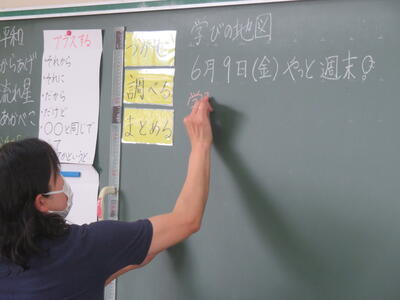 平和
からあげ
流れ星
あかべこ
プラスする
それから
・それに
・だから
・だけど
・〇〇と同じで
つかむ
調べる
まとめる
学びの地図
6月9日(金)やっと週末
学